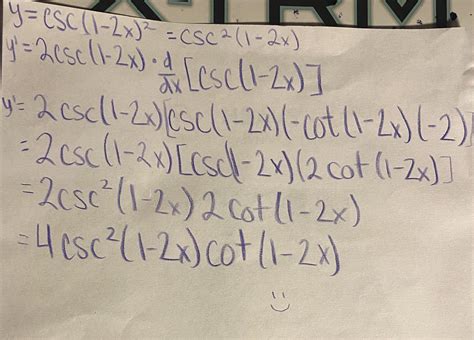 y=csc(1-2x)² = csc²(1-2x)
y'=2csc(1-2x)·d/dx[csc(1-2x)]
y'=2csc(1-2x)[csc(1-2x)(-cot(1-2x)(-2)]
=2csc(1-2x)[csc(1-2x)(2cot(1-2x)]
=2csc²(1-2x)2cot(1-2x)
=4csc²(1-2x)cot(1-2x)